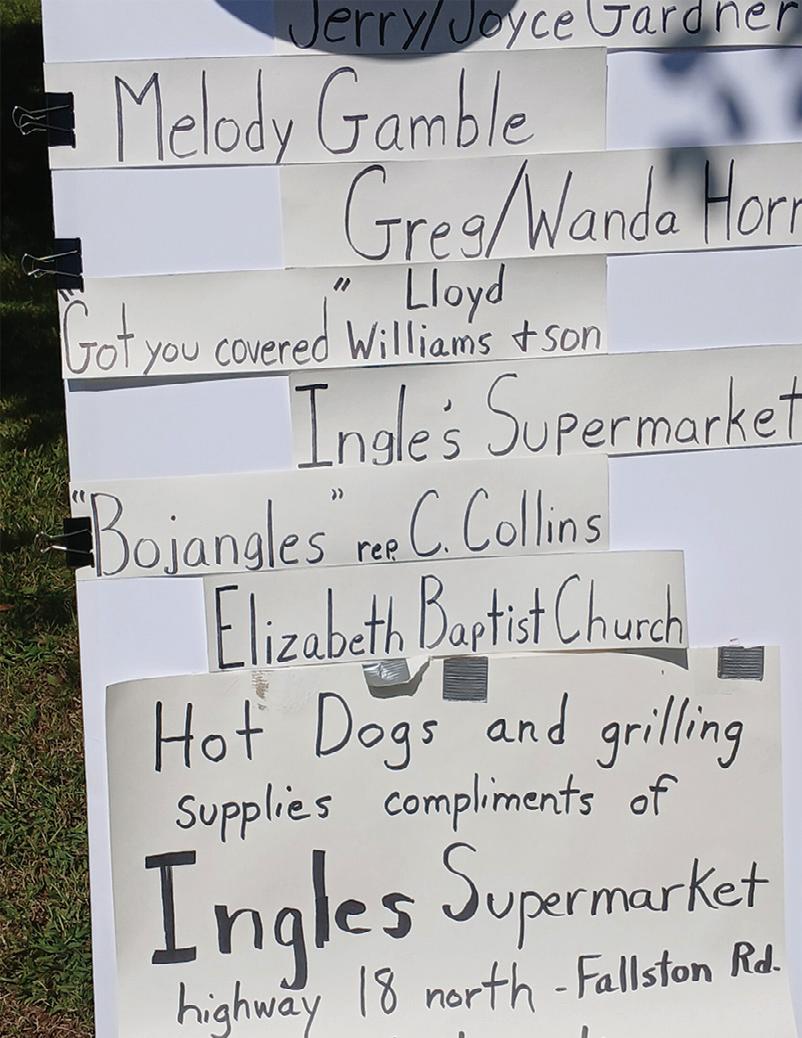 Jerry/Joyce Gardner
Melody Gamble
Greg/Wanda Horr
"Got you covered" Lloyd
Williams + son
Ingle's Supermarket
"Bojangles" rep. C. Collins
Elizabeth Baptist Church
Hot Dogs and grilling
supplies compliments of
Ingles Supermarket
highway 18 north - Fallston Rd.